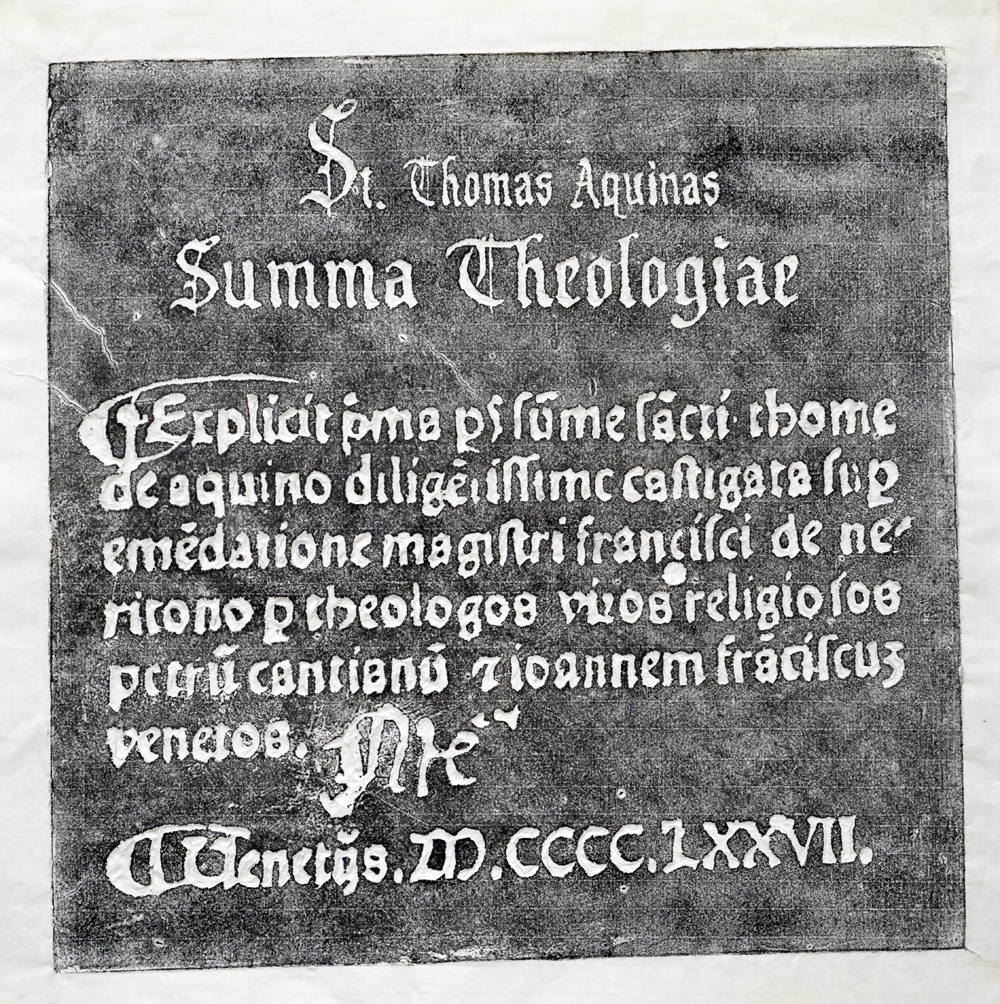 St. Thomas Aquinas
Summa Theologiae
Explicit p̄ma ps̄ sūme sācti thome
de aquino diligētissime castigata sup
emēdatione magistri francisci de ne-
ritono ꝑ theologos viros religiosos
petrū cantianū ⁊ ioannem frāciscuꝫ
venetos.
Uenetijs. M. CCCC. LXXVII.